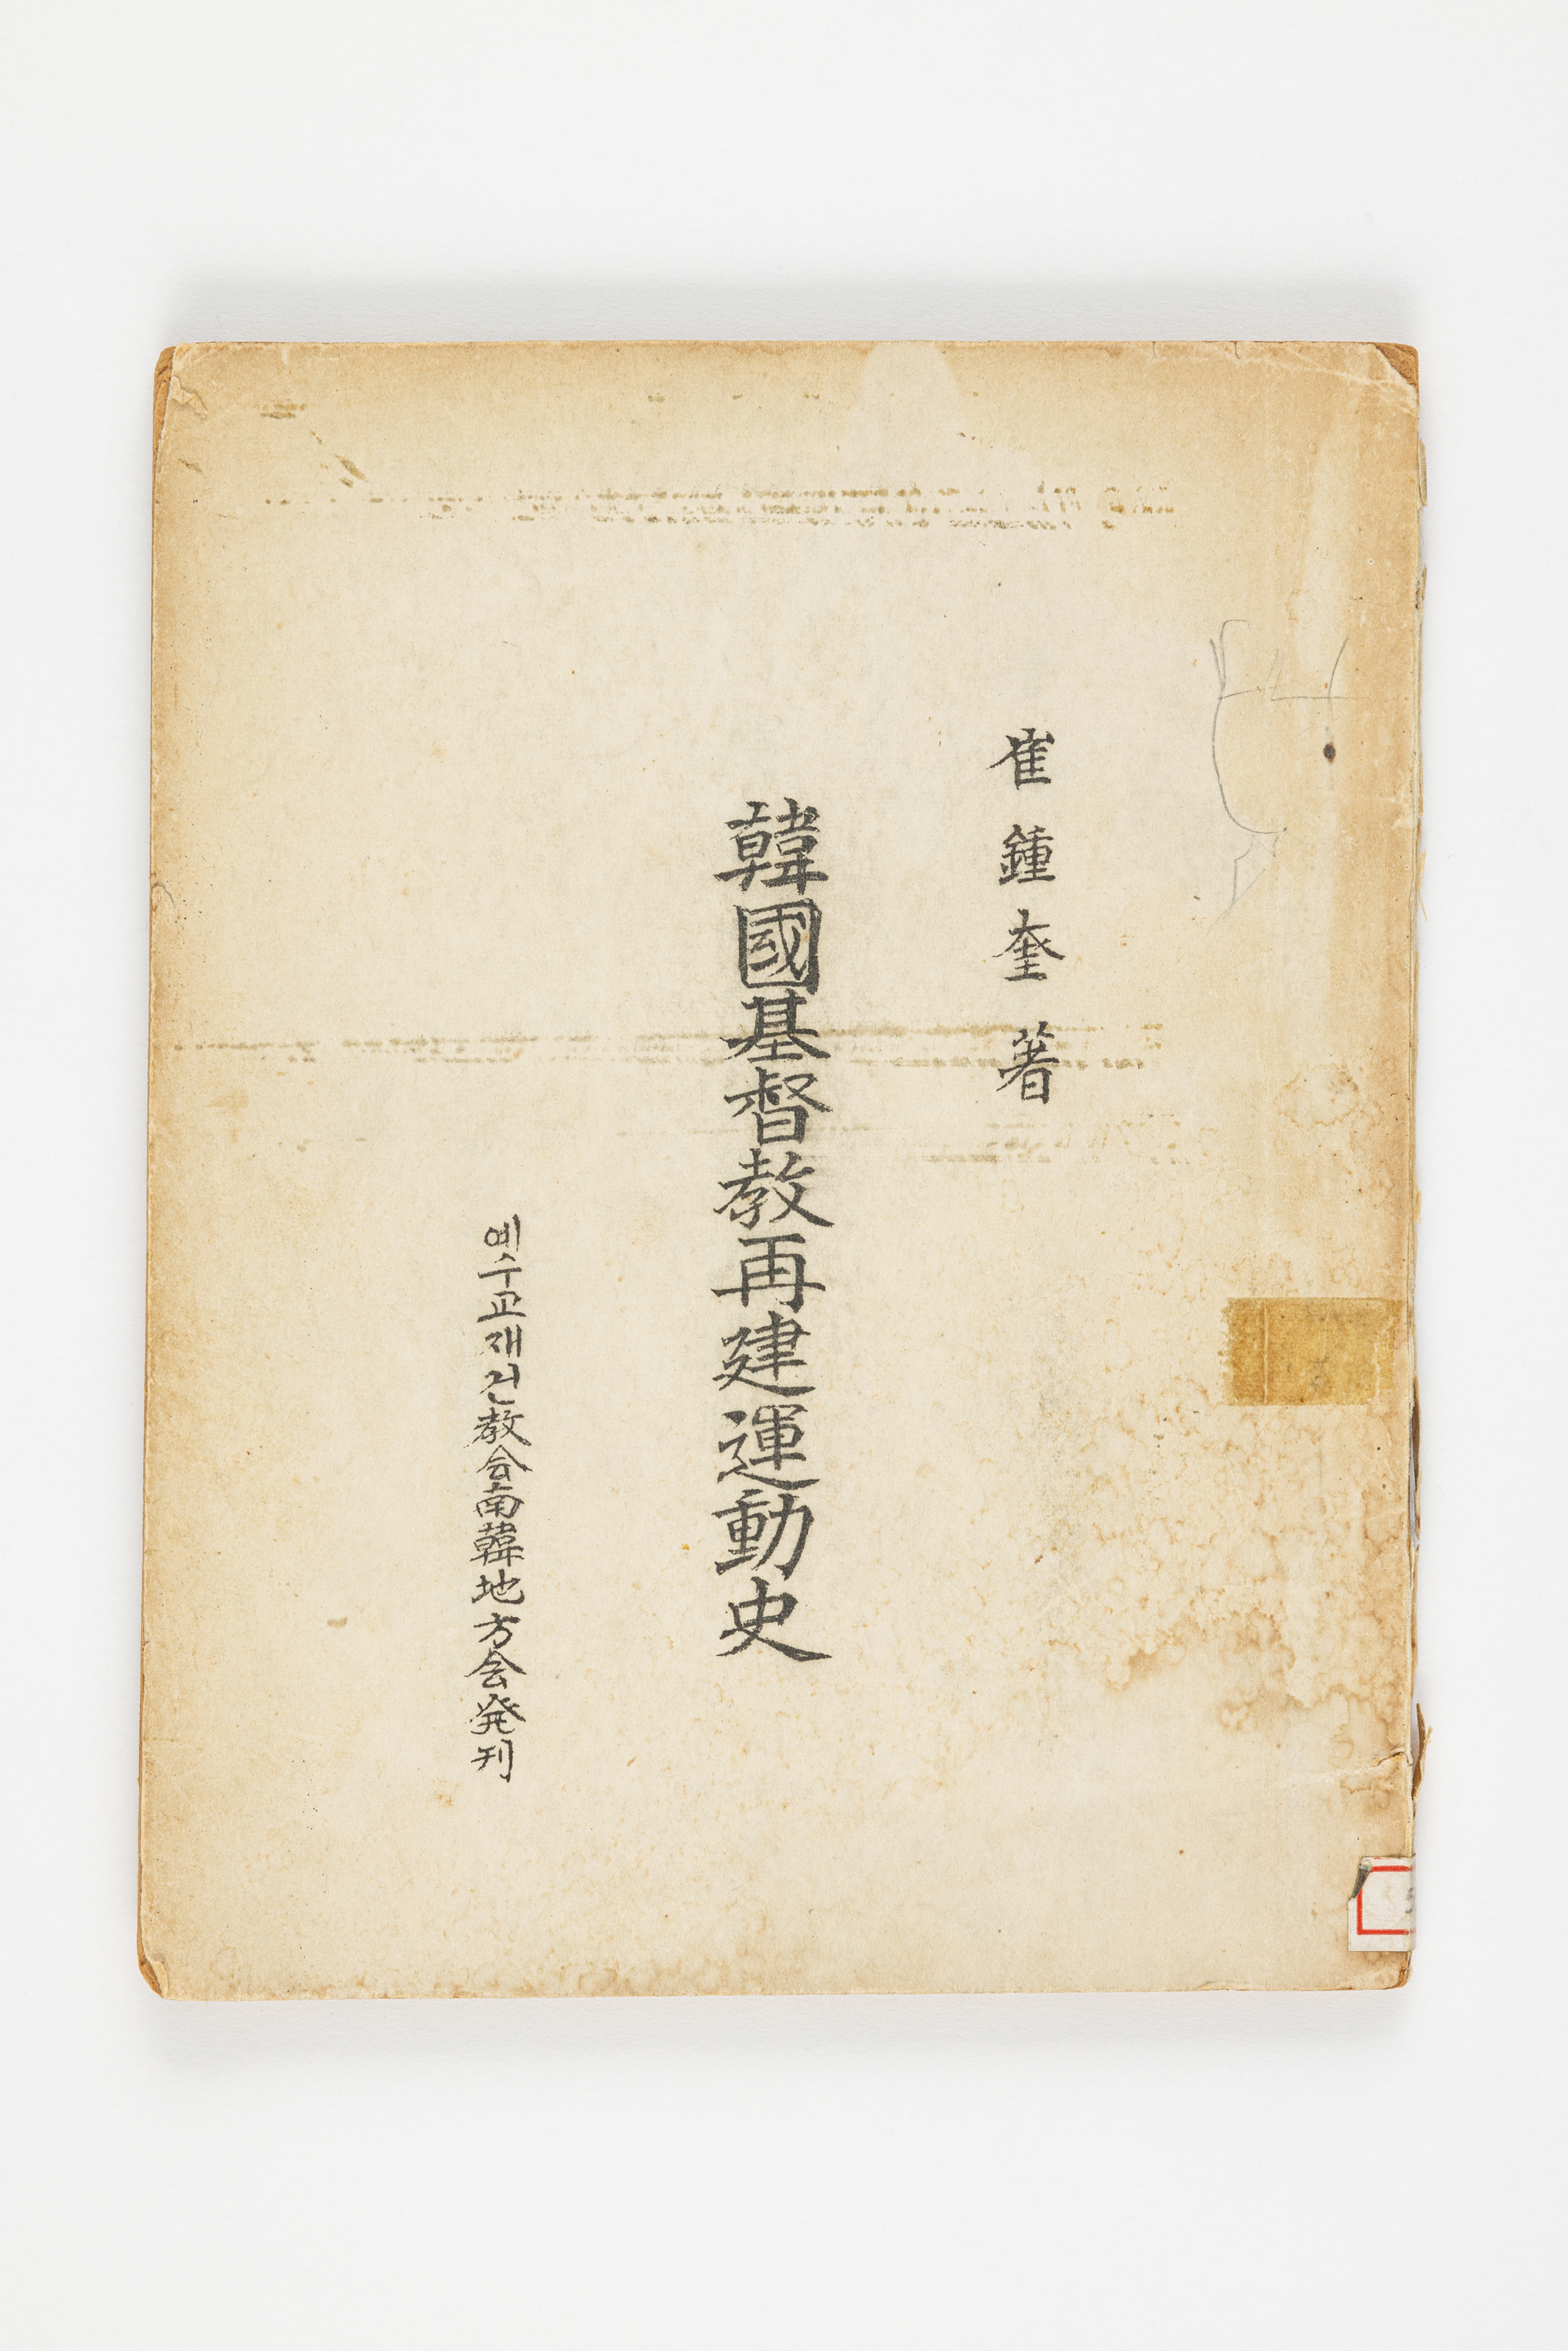 崔鍾奎 著
韓國基督敎再建運動史
예수교재건教会南韓地方会発刊